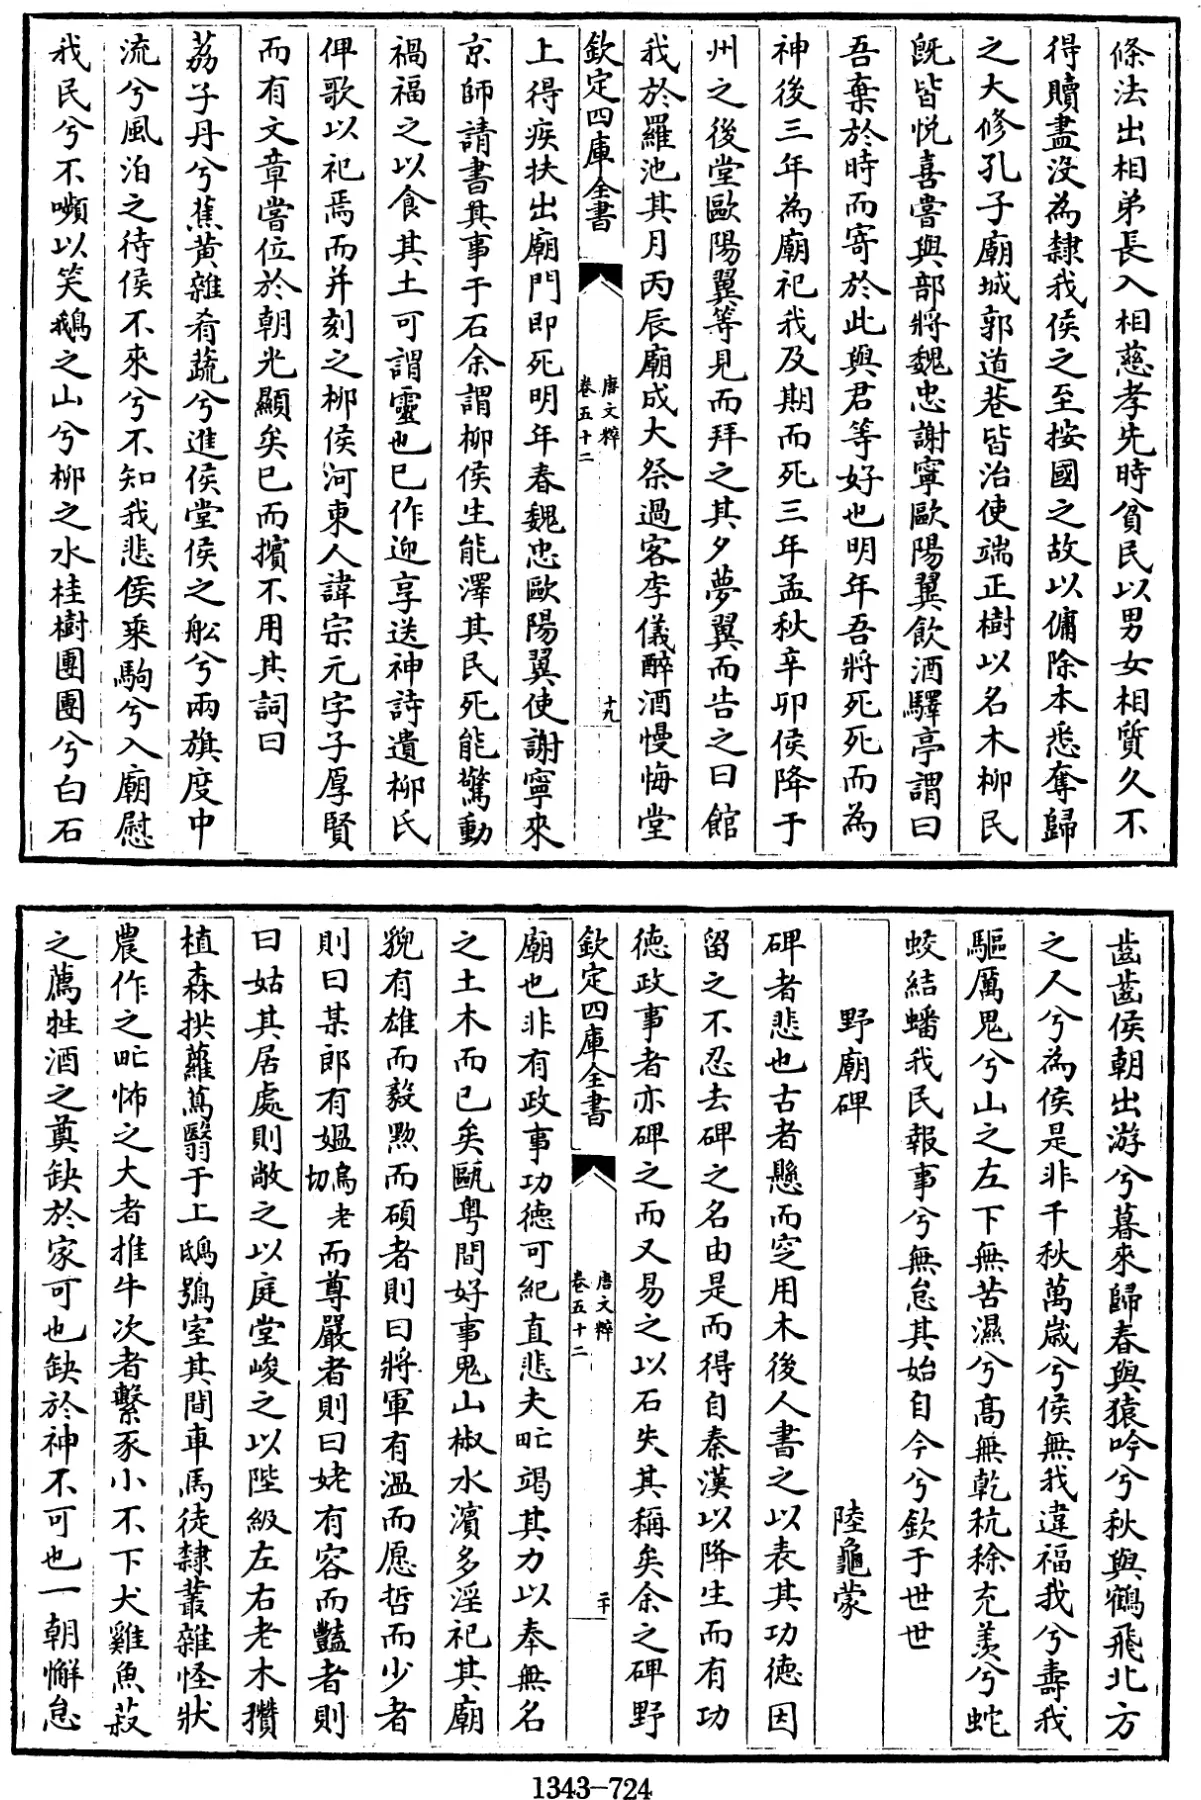 條法出相弟長入相慈孝先時貧民以男女相質久不
得贖盡没為隷我侯之至按國之故以傭除本悉奪歸
之大修孔子廟城郭道巷皆治使端正樹以名木柳民
既皆悦喜嘗與部將魏忠謝寧歐陽翼飲酒驛亭謂曰
吾棄於時而寄於此與君等好也明年吾將死死而為
神後三年為廟祀我及期而死三年孟秋辛卯侯降于
州之後堂歐陽翼等見而拜之其夕夢翼而告之曰館
我於羅池其月丙辰廟成大祭過客李儀醉酒慢侮堂
欽定四庫全書
唐文粹
卷五十二
十九
上得疾扶出廟門即死明年春魏忠歐陽翼使謝寧來
京師請書其事于石余謂柳侯生能澤其民死能驚動
禍福之以食其土可謂靈也已作迎享送神詩遺柳氏
俾歌以祀焉而并刻之柳侯河東人諱宗元字子厚賢
而有文章嘗位於朝光顯矣已而擯不用其詞曰
荔子丹兮蕉黄雜肴蔬兮進侯堂侯之舩兮兩旗度中
流兮風泊之待侯不來兮不知我悲侯乘駒兮入廟慰
我民兮不嚬以笑鵝之山兮柳之水桂樹團團兮白石
齒齒侯朝出游兮暮來歸春與猿吟兮秋與鶴飛北方
之人兮為侯是非千秋萬嵗兮侯無我違福我兮壽我
驅厲鬼兮山之左下無苦濕兮髙無乾秔稌充羨兮蛇
蛟結蟠我民報事兮無怠其始自今兮欽于世世
野廟碑 陸龜蒙
碑者悲也古者懸而窆用木後人書之以表其功徳因
留之不忍去碑之名由是而得自秦漢以降生而有功
徳政事者亦碑之而又易之以石失其稱矣余之碑野
欽定四庫全書
唐文粹
卷五十二
二十
廟也非有政事功徳可紀直悲夫甿竭其力以奉無名
之土木而已矣甌粤間好事鬼山椒水濱多淫祀其廟
貌有雄而毅黝而碩者則曰將軍有溫而愿晢而少者
則曰某郎有媼烏老切而尊嚴者則曰姥有容而豔者則
曰姑其居處則敞之以庭堂峻之以陛級左右老木攢
植森拱蘿蔦翳于上鴟鴞室其間車馬徒隷叢雜怪狀
農作之甿怖之大者推牛次者擊豕小不下犬雞魚菽
之薦牲酒之奠缺於家可也缺於神不可也一朝懈怠
1343-724